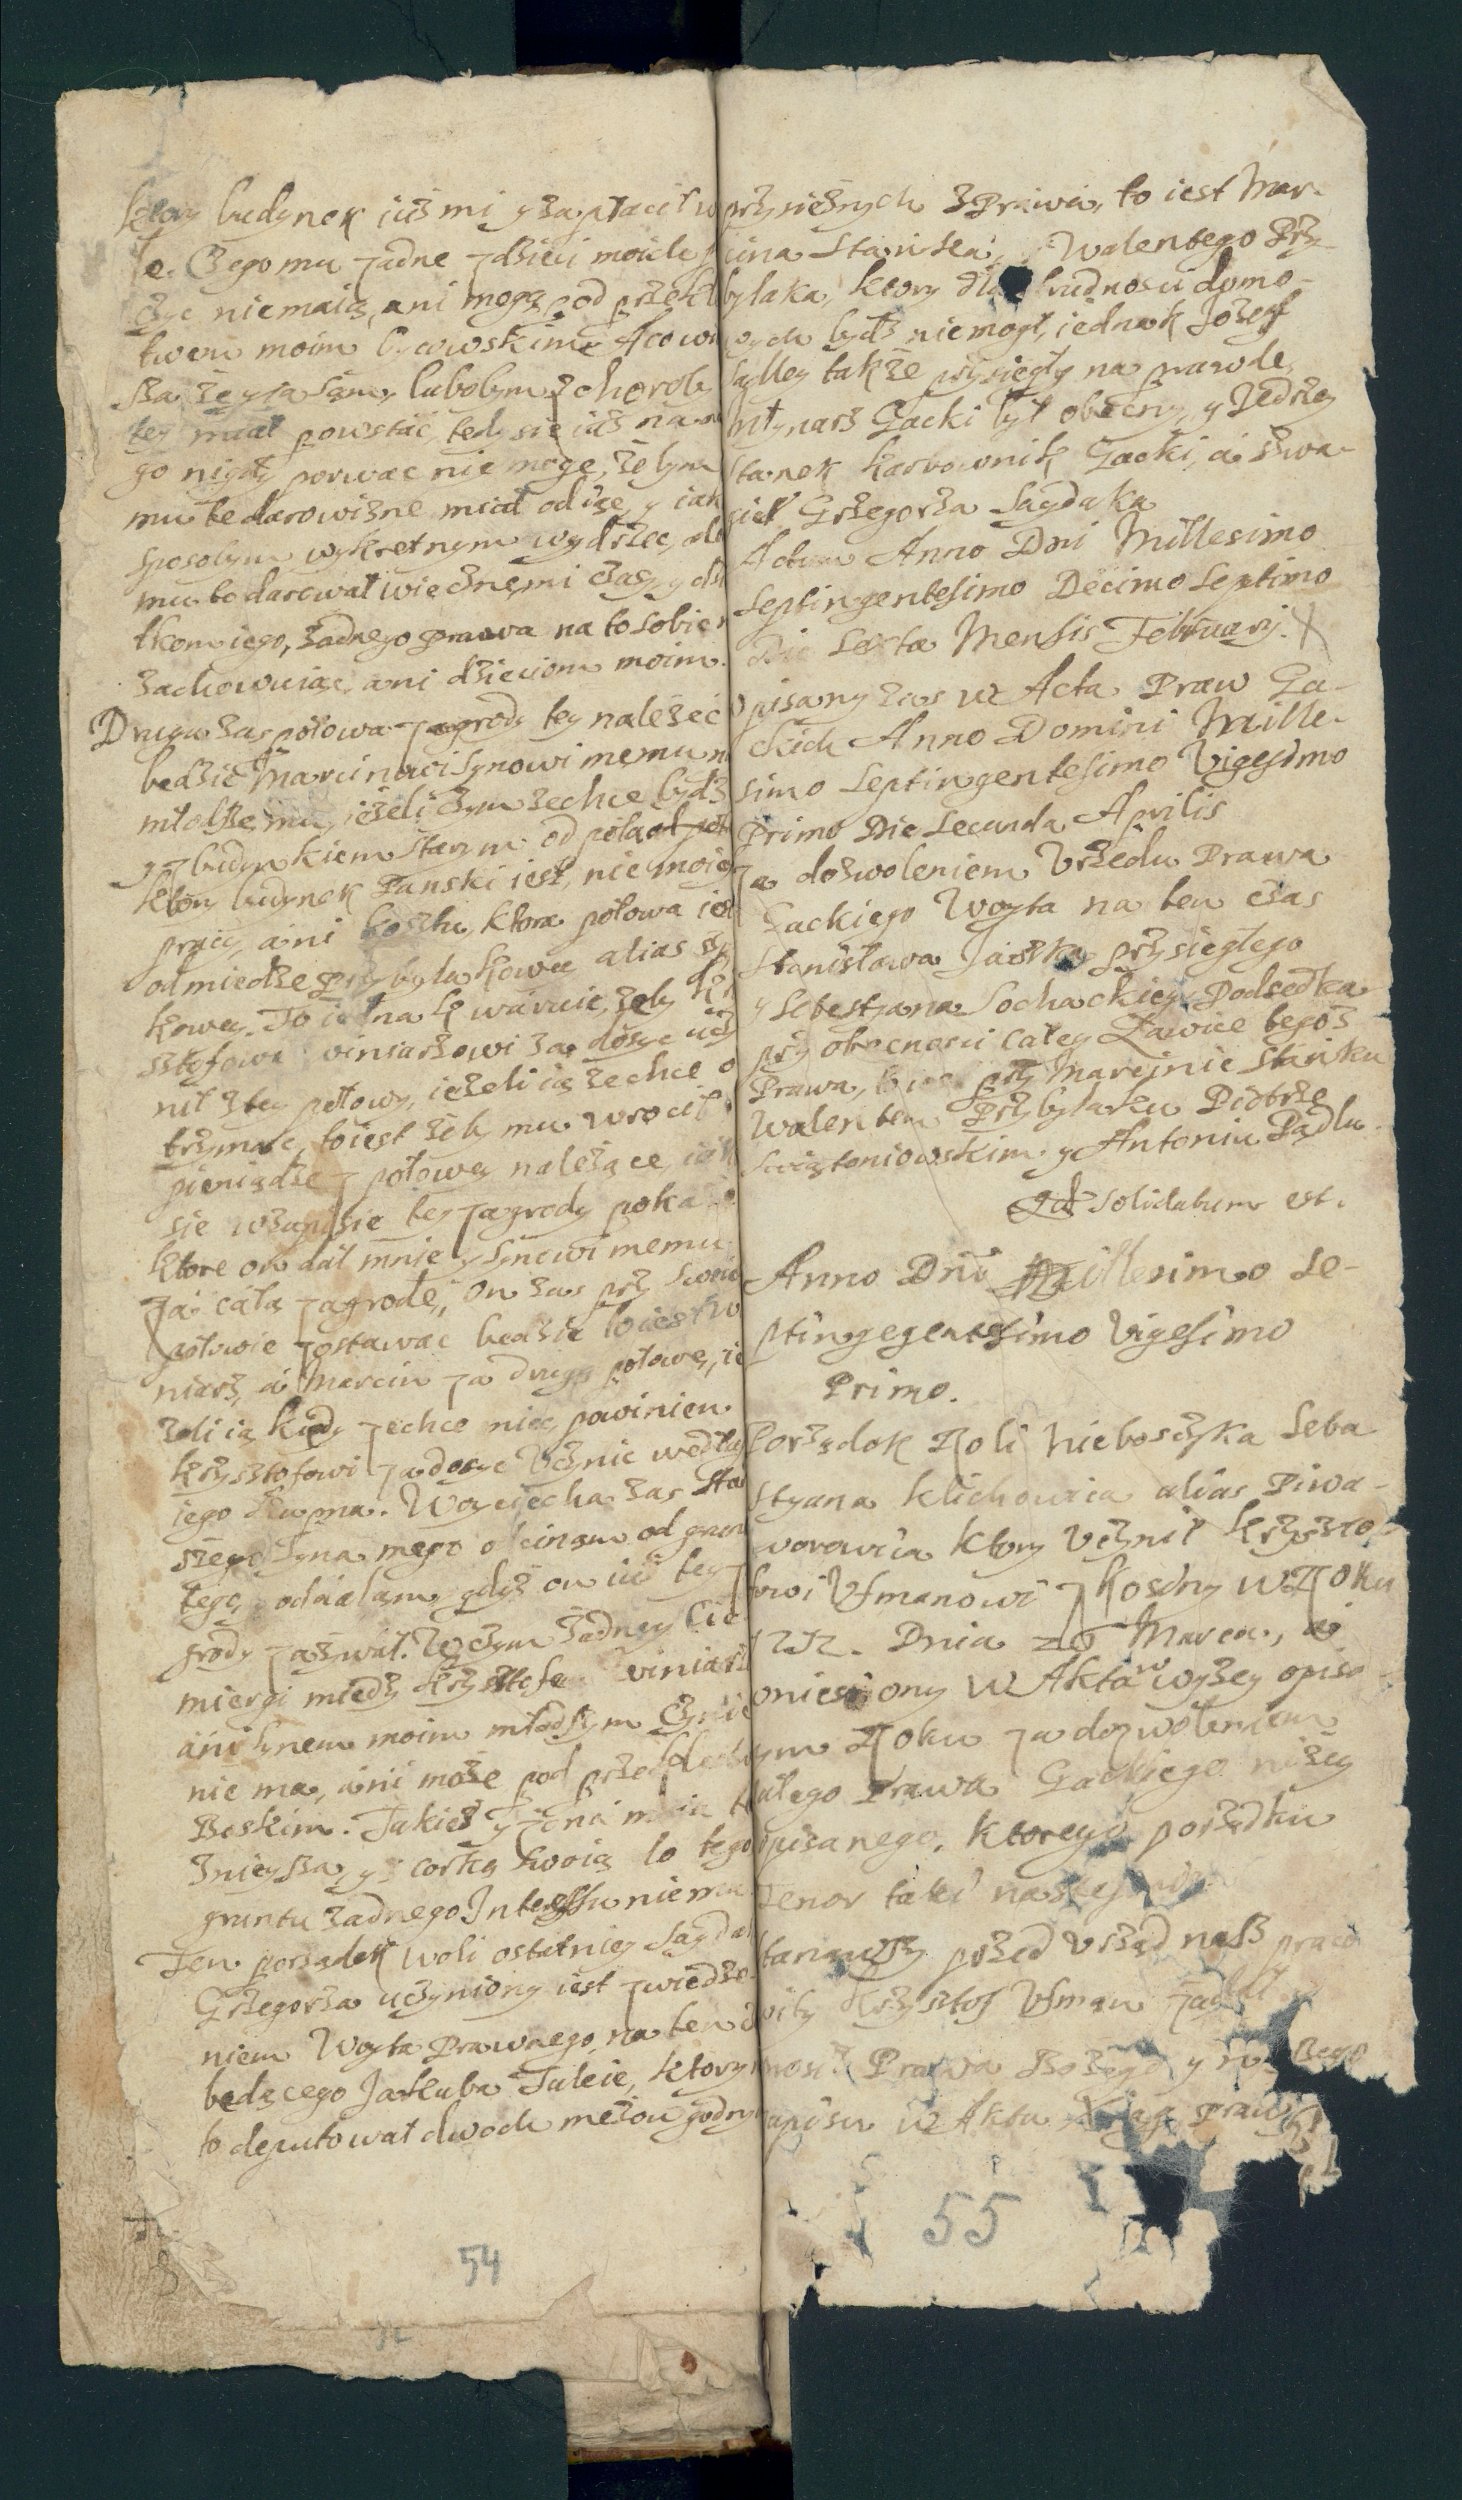 ktory budynek iuż mi y zapłacił w
le. Czego mu żadne z dzieci moich
życ niemaią, ani mogą pod przekl
twem moim oycowskim. A co wi
ksza że y ia sam, lubobym z choroby
tey miał powstać, tedy się iuż na
go nigdy porwac nie mogę, żebym
mu te darowiznę miał odiąc, y iak
sposobym wykrętnym wydrzec,
mu to darował wiecznemi czasy y dzi
tkom iego, żadnego prawa na to sobie
zachowuiąc, ani dzieciom moim.
Druga zas połowa zagrody tey należeć
będzie Marcinowi synowi memu
młodszemu, ieżeli czym zechce bydz
y z budynkiem starym od pola
ktory budynek Panski iest, nie moiey
pracy, ani kosztu, ktora połowa iest
od miedze Przybylakowey alias
kowey. To iednak waruię, żeby
sztofowi viniarzowi za dosyc uczy
nił z tey połowy, ieżeli ią zechce o
trzymac, to iest żeby mu wrocił
pieniądze z połowy należące, iak
się w zapisie tey zagrody poka
ktore on dał mnie y synowi memu
za całą zagrodę, on zas przy swoiey
połowie zostawac będzie to iest w
niarz, a Marcin za drugą połowę, ie
żeli ią kiedy zechce miec, powinien
Krzysztofowi za dosyc uczynic według
iego kupna. Woyciecha zas sta
szego syna mego odcinam od grun
tego, oddalam, gdyż on iuż tey za
grody zażywał. W czym żadney
miergi miedzy Krzysztofem viniarz
ani synem moim młodszym czynic
nie ma, ani może pod przeklectwem
Boskim. Takież y żona moia
znieysza, y z corką swoią do tego
gruntu żadnego Interessu niema.
Ten porządek woli ostatniey Sagda
Grzegorza uczyniony iest z wiedze
niem Woyta Prawnego, na ten
będącego Jakuba Tuleie, ktory
to deputował dwoch mężow godny
przysiężnych z Prawa, to iest Mar-
cina Stanka, Walentego Przy-
bylaka, ktory dla trudnosci domo-
wych bydz niemogł, iednak Jozeff
Saylley także przysięgły na prawde
Młynarz Gacki był obecny, y Jedrzey
Stanek karbownik Gacki, a szwa-
gier Grzegorza Sagdaka
Actum Anno Dni Millesimo
Septingentesimo Decimo Septimo
Die Sexta Mensis Februarij.
Opisany zas w Acta Praw Ga-
ckich Anno Domini Mille-
simo Septingentesimo Vigesimo
Primo Die Secunda Aprilis
za dozwoleniem Vrzedu Prawa
Gackiego Woyta na ten czas
Stanisława Jaszka przysięgłego
y Sebestyana Sochackiego Podsedka
przy obecnosci całey Ławice tegoż
Prawa, to iest przy Marcinie Stanku
Walentem Przybylaku Pietrze
Swiątoniowskim y Antonim Pądlu.
Qd Solidatum est.
Anno Dni Millesimo Se-
ptingegentesimo Vigesimo
Primo.
Porządek Roli Nieboszczyka Seba
styana Klichowicza alias Piwa-
worowicza ktory uczynił Krzyszto-
fowi Usmanowi z Kosiny w Roku
1712. Dnia 26 Marca, a
wniesiony w Akta w wyżey opisa
nym Roku za dozwoleniem
całego Prawa Gackiego niżey
opisanego, ktorego porządku
Tenor taki nastepuie
Stanąwszy przed Vrząd nasz praco
wity Krzysztof Usman żąd
Prawa Bożego y
zapisu w Akta Xiąg Praw
54
55